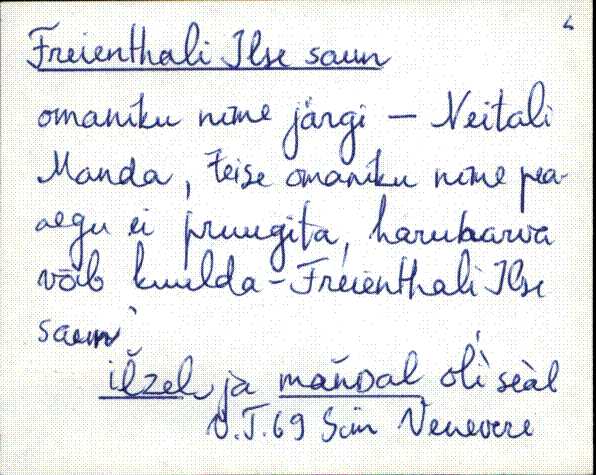 Freienthali Ilse saun
omaniku nime järgi — Neitali
Manda, teise omaniku nime pea-
aegu ei pruugita, harukorva
võib kuulda - Freienthali Ilse
saun
ilzel ja mandal oli seal
V.T. 69 Sim Venevere